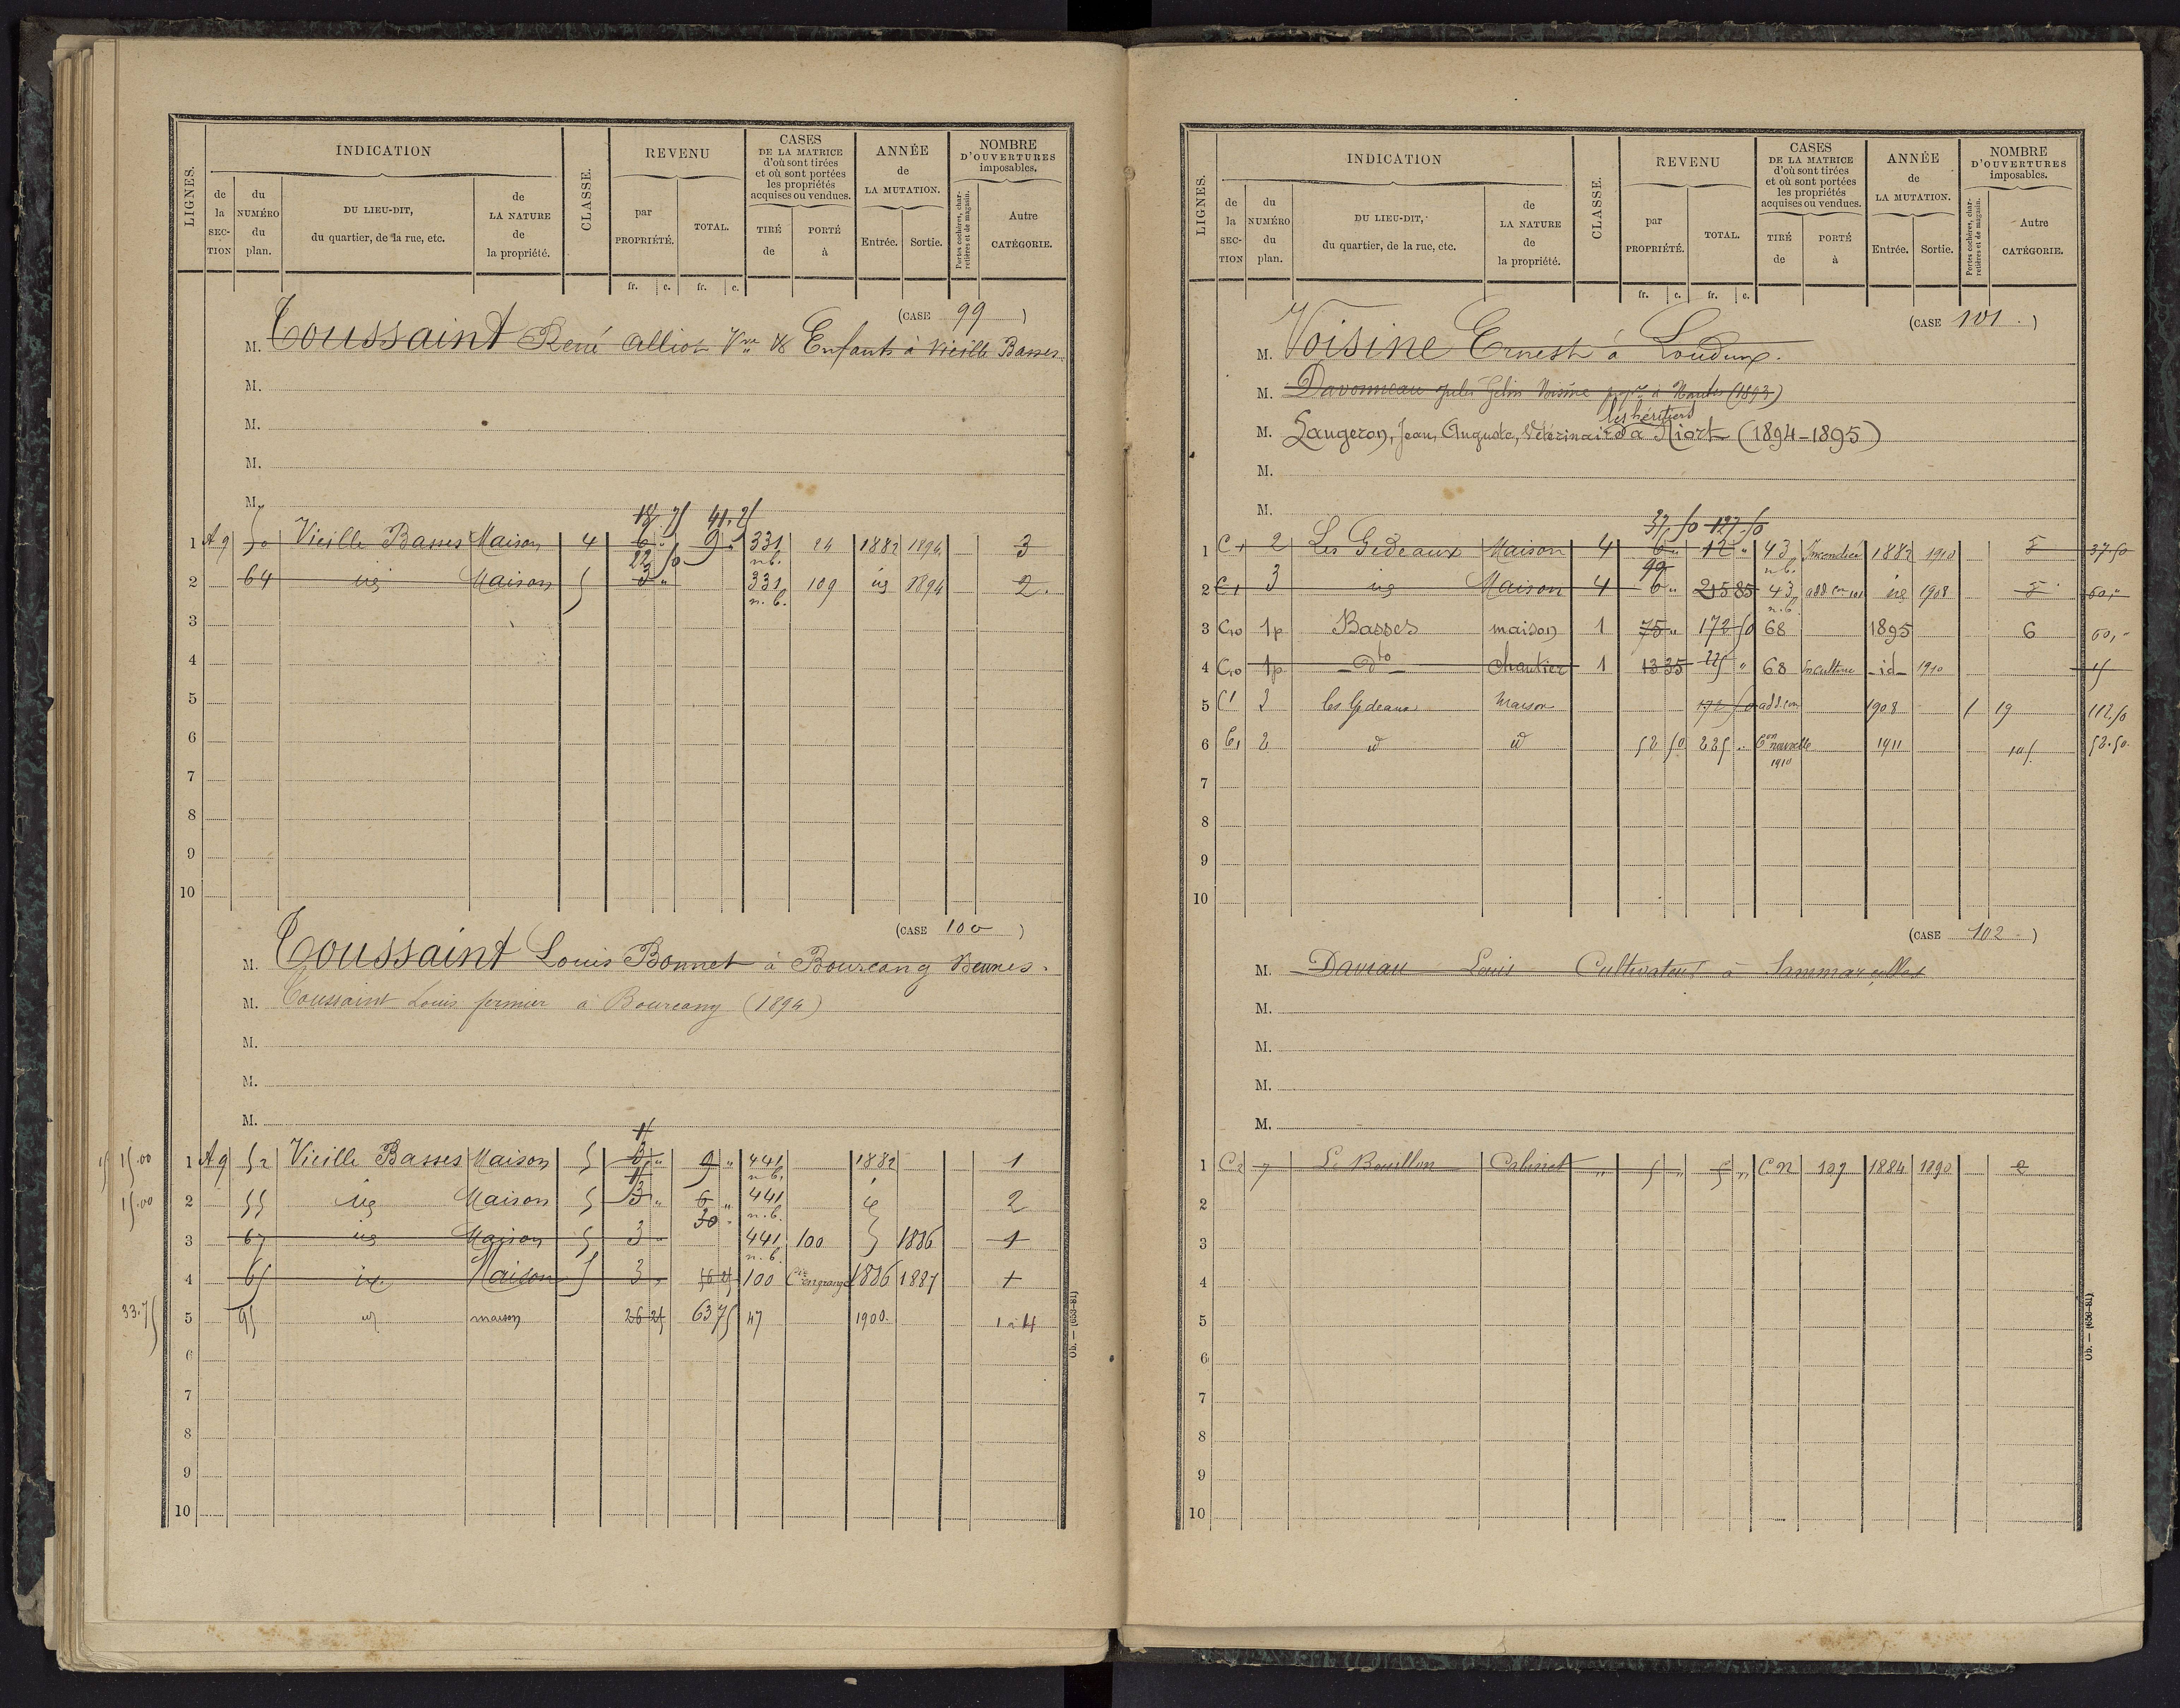 INDICATION
REVENU
CASES
DE LA MATRICE
d'où sont tirées
et où sont portées
les propriétés
acquises ou vendues.
ANNÉE
de
LA MUTATION.
NOMBRE
D'OUVERTURES
imposables.
LIGNES.
de la SECTION
du NUMÉRO du plan.
DU LIEU-DIT,
du quartier, de la rue, etc.
de LA NATURE de la propriété.
CLASSE.
par PROPRIÉTÉ.
TOTAL.
TIRÉ de
PORTÉ à
Entrée.
Sortie.
Portes cochères, charretières et de magasin.
Autre CATÉGORIE.
fr. c. fr. c.
(CASE 99)
M. Toussaint René Alliot Vve & Enfants à Vieille Basses
M.
M.
M.
M.
18 75 41.25
1 A9 50 Vieille Basses Maison 4 6 " 9 " 331 24 1882 1894 3
22 50 n.b.
2 64 id Maison 5 3 " 331 109 id 1894 2.
n.b.
3
4
5
6
7
8
9
10
(CASE 100)
M. Toussaint Louis Bonnet à Bourcany Beunes.
M. Toussaint Louis fermier à Bourcany (1894)
M.
M.
M.
15
15 15.00 1 A9 52 Vieille Basses Maison 5 3 " 9 " 441 1882 1
15 n.b.
15.00 2 55 id Maison 5 3 " 6 " 441 id 2
30 n.b.
3 67 id Maison 5 3 " 441 100 1886 1
n.b.
4 65 id Maison 5 3 " 100 en grange 1886 1887 1
33.75 5 95 id maison 26 25 63 75 47 1900 1 à 4
6
7
8
9
10
Ob. — (653-81)
INDICATION
REVENU
CASES
DE LA MATRICE
d'où sont tirées
et où sont portées
les propriétés
acquises ou vendues.
ANNÉE
de
LA MUTATION.
NOMBRE
D'OUVERTURES
imposables.
LIGNES.
de la SECTION
du NUMÉRO du plan.
DU LIEU-DIT,
du quartier, de la rue, etc.
de LA NATURE de la propriété.
CLASSE.
par PROPRIÉTÉ.
TOTAL.
TIRÉ de
PORTÉ à
Entrée.
Sortie.
Portes cochères, charretières et de magasin.
Autre CATÉGORIE.
fr. c. fr. c.
(CASE 101.)
M. Voisine Ernest à Loudun.
M. Davonneau Jules Gelin Voisine à Nantes (1893)
les héritiers
M. Laugeron, Jean, Auguste, Vétérinaire à Niort (1894-1895)
M.
M.
37,50 127.50
1 C1 2 Les Gedeaux Maison 4 6 " 12 " 43 Incendiée 1882 1910 5 37.50
90 n.b.
2 C1 3 id Maison 4 6 " 215 85 43 add con 101 id 1908 5 60,"
n.b.
3 C10 1p Basses maison 1 75 " 172 50 68 1895 6 60,"
4 C10 1p dto chantier 1 13 35 225 " 68 En culture id 1910 15
5 C1 3 les Gedeaux Maison 172 50 add con 1908 1 19 112.50
6 C1 2 id id 52 50 225 " Con nouvelle 1911 105 52.50
1910
7
8
9
10
(CASE 102.)
M. Daveau Louis Cultivateur à Sammarçolles
M.
M.
M.
M.
1 C2 7 Le Bouillon Cabinet " 5 " 5 " CN 107 1884 1890 2
2
3
4
5
6
7
8
9
10
Ob. — (653-81)